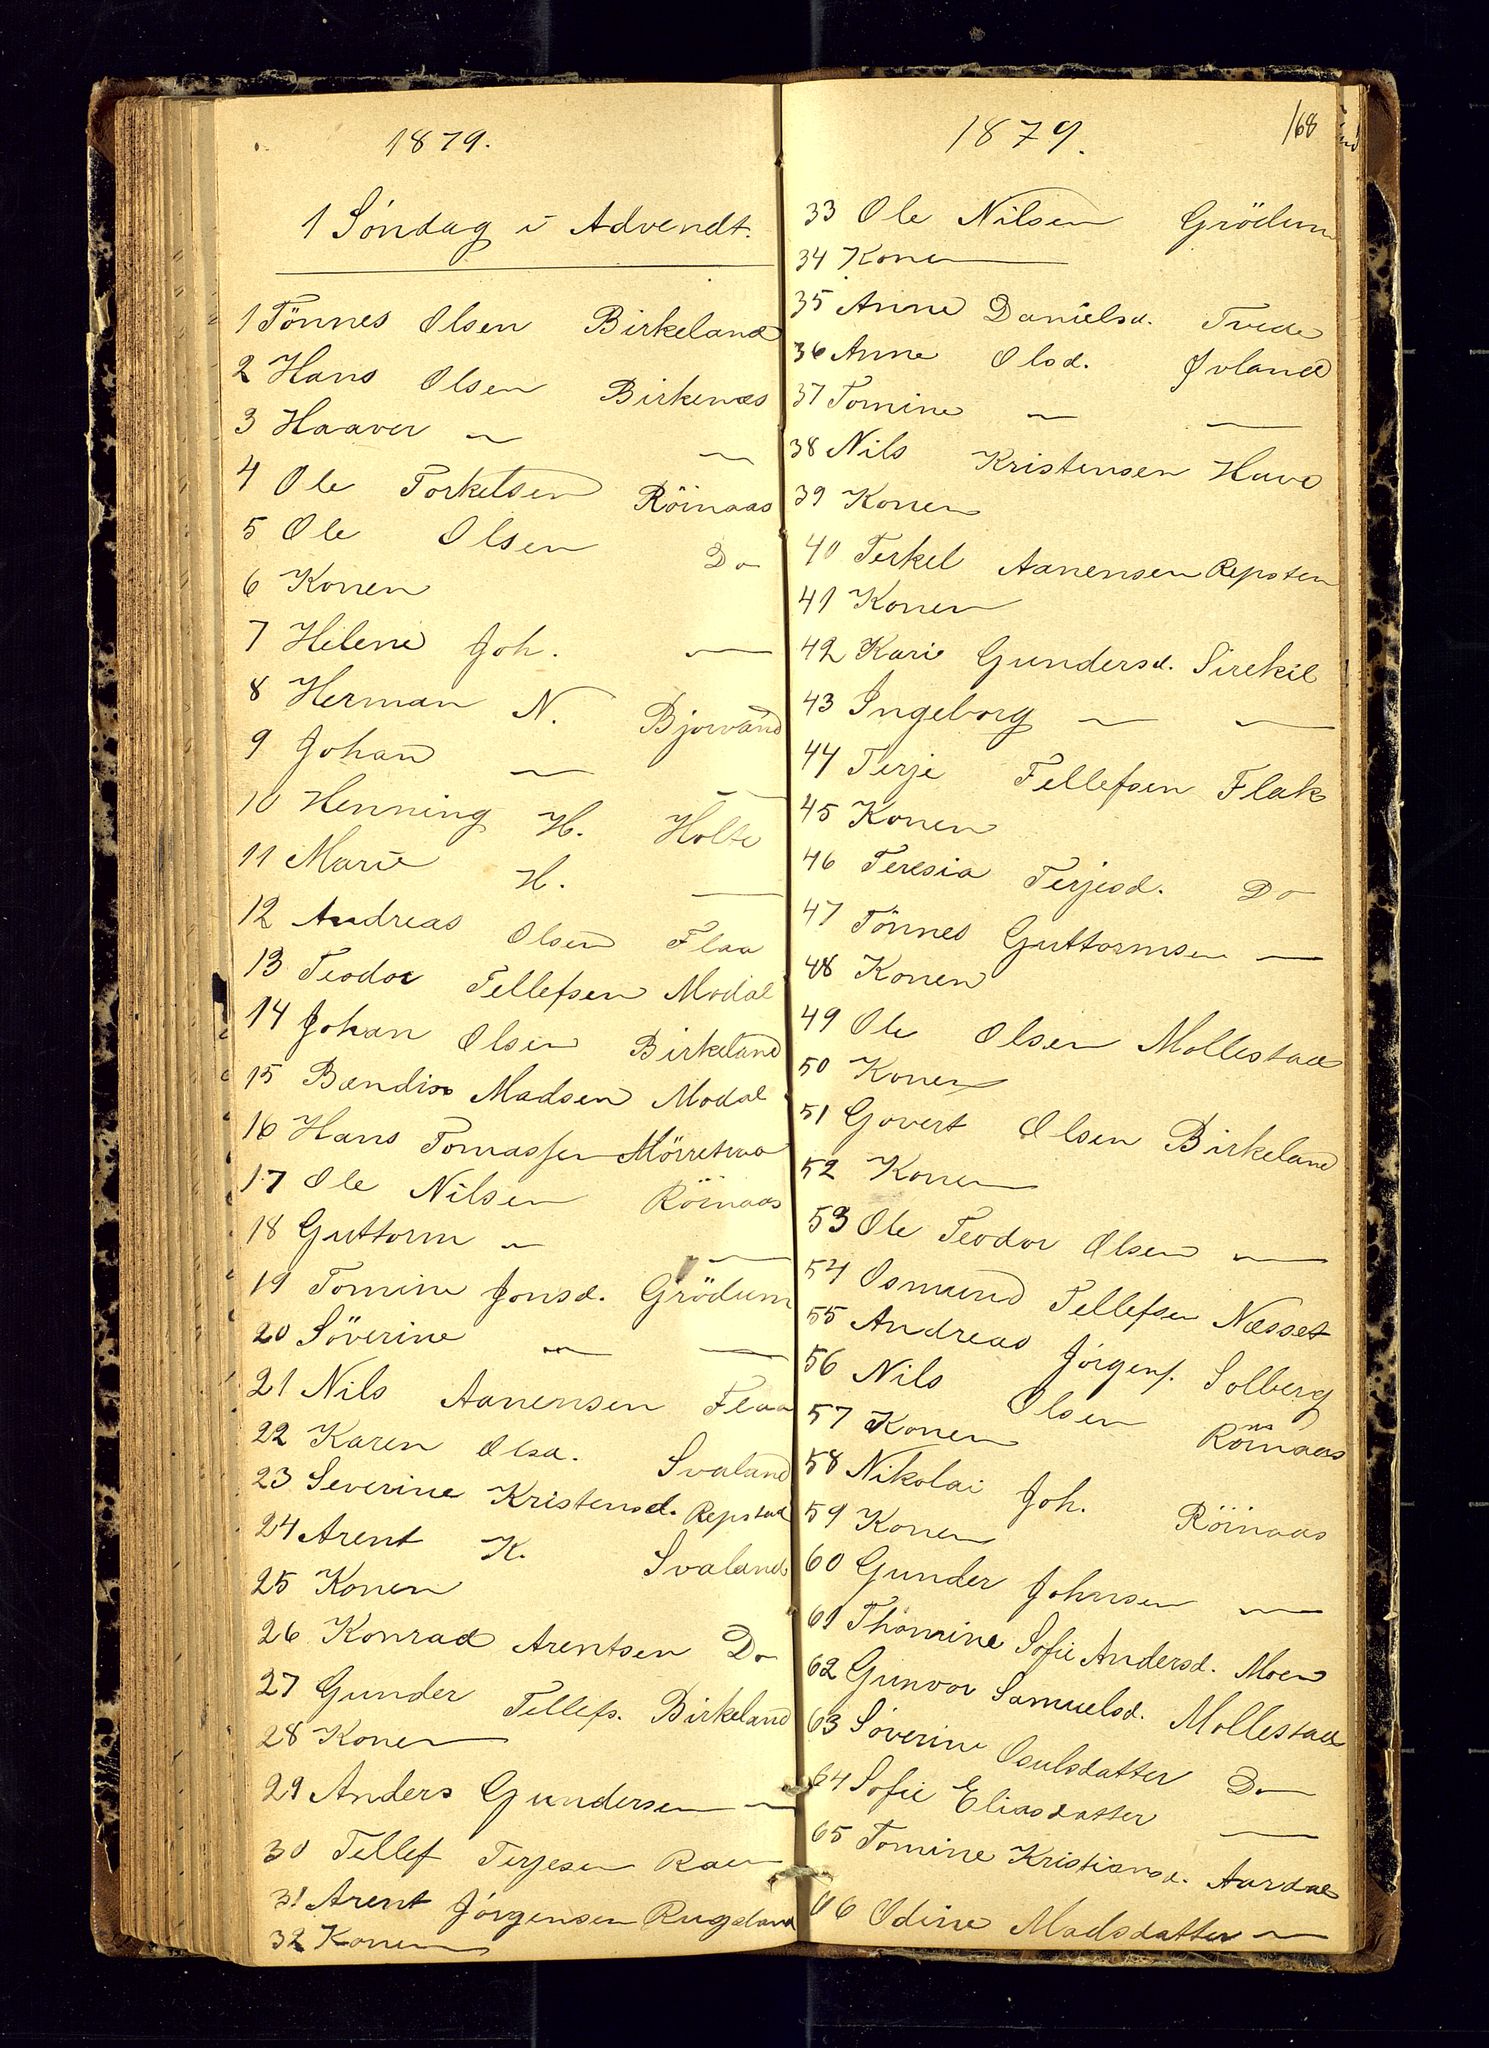 1879.
1 Söndag i Advendt.
1 Tönnes Olsen Birkeland
2 Hans Olsen Birkenæs
3 Haaver — —
4 Ole Torkelsen Röinaas
5 Ole Olsen Do
6 Konen
7 Helene Joh. —
8 Herman N. Bjorvand
9 Johan — —
10 Henning H. Holte
11 Marie H. —
12 Andreas Olsen Flaa
13 Teodor Tellefsen Modal
14 Johan Olsen Birkeland
15 Bendix Madsen Modal
16 Hans Tomassen
17 Ole Nilsen Röinaas
18 Guttorm — —
19 Tomine Jonsd. Grödum
20 Söverine — —
21 Nils Aanensen Flaa
22 Karen Olsd. Svaland
23 Severine Kristensd. Repstad
24 Arent K. Svaland
25 Konen
26 Konrad Arentsen Do
27 Gunder Tellefs. Birkeland
28 Konen
29 Anders Gundersen —
30 Tellef Terjesen Raen
31 Arent Jörgensen Rugsland
32 Konen
1879.
168
33 Ole Nilsen Grödum
34 Konen
35 Anne Danielsd. Tvede
36 Anne Olsd. Øvland
37 Tomine — —
38 Nils Kristensen Have
39 Konen
40 Terkel Aanensen Repsten
41 Konen
42 Karie Gundersd. Sirekil
43 Ingeborg — —
44 Terje Tellefsen Flak
45 Konen
46 Teresia Terjesd. Do
47 Tönnes Guttormsen —
48 Konen
49 Ole Olsen Mollestad
50 Konen
51 Govert Olsen Birkeland
52 Konen
53 Ole Teodor Olsen —
54 Osmund Tellefsen Næsset
55 Andreas Jörgens. Solberg
56 Nils Olsen Röinaas
57 Konen
58 Nikolai Joh. Röinaas
59 Konen
60 Gunder Johnsen —
61 Thomine Sofie Andersd. Moen
62 Gunvor Samuelsd. Mollestad
63 Söverine Osulsdatter Do
64 Sofie Eliasdatter —
65 Tomine Kristiansd. Aardal
66 Odine Madsdatter —